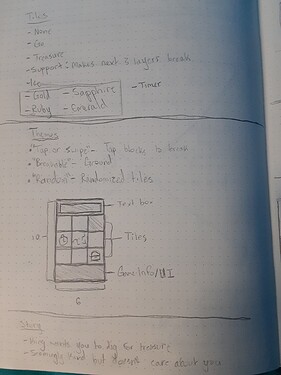 Tiles
- None
- Go
- Treasure
- Support: Makes next 3 layers break
- Gold - Sapphire - Timer
- Ruby - Emerald
Themes
- "Tap or swipe" - Tap blocks to break
- "Breakable" - Ground
- "Random" - Randomized tiles
Text box
10
Tiles
Game Info/UI
6
Story
- King wants you to dig for treasure
- Seemingly kind but doesn't care about you